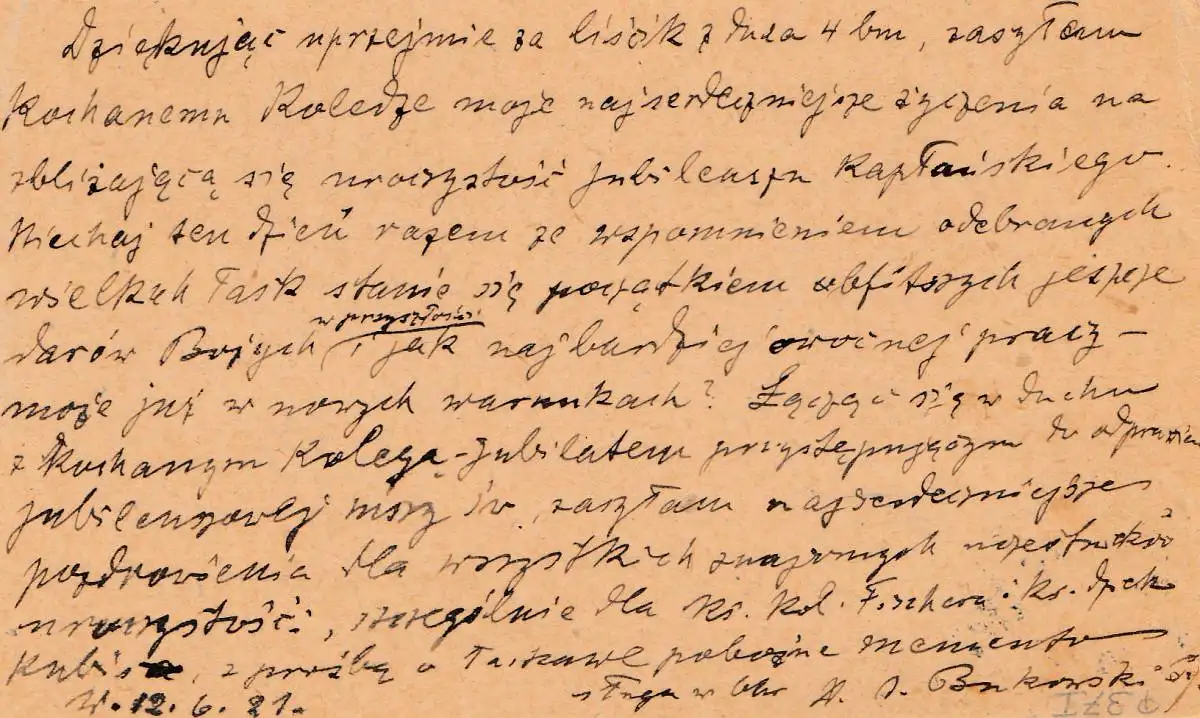 Dziękując uprzejmie za liścik z dnia 4 bm, zasyłam
Kochanemu Koledze moje najserdeczniejsze życzenia na
zbliżającą się uroczystość jubileuszu kapłańskiego.
Niechaj ten dzień razem ze wspomnieniem odebranych
wielkich łask stanie się początkiem obfitszych jeszcze
w przyszłości
darów Bożych, i jak najbardziej owocnej pracy –
może już w nowych warunkach? Łącząc się w duchu
z Kochanym Kolegą-Jubilatem przystępującym do
jubileuszowej mszy św, zasyłam najserdeczniejsze
pozdrowienia dla wszystkich znajomych uczestników
uroczystości, szczególnie dla ks. kol. Fischera i ks. dziek
z prośbą o łaskawe pobożne memento
sługa w Chr A. J. Bukowski SJ.
W. 12. 6. 21.